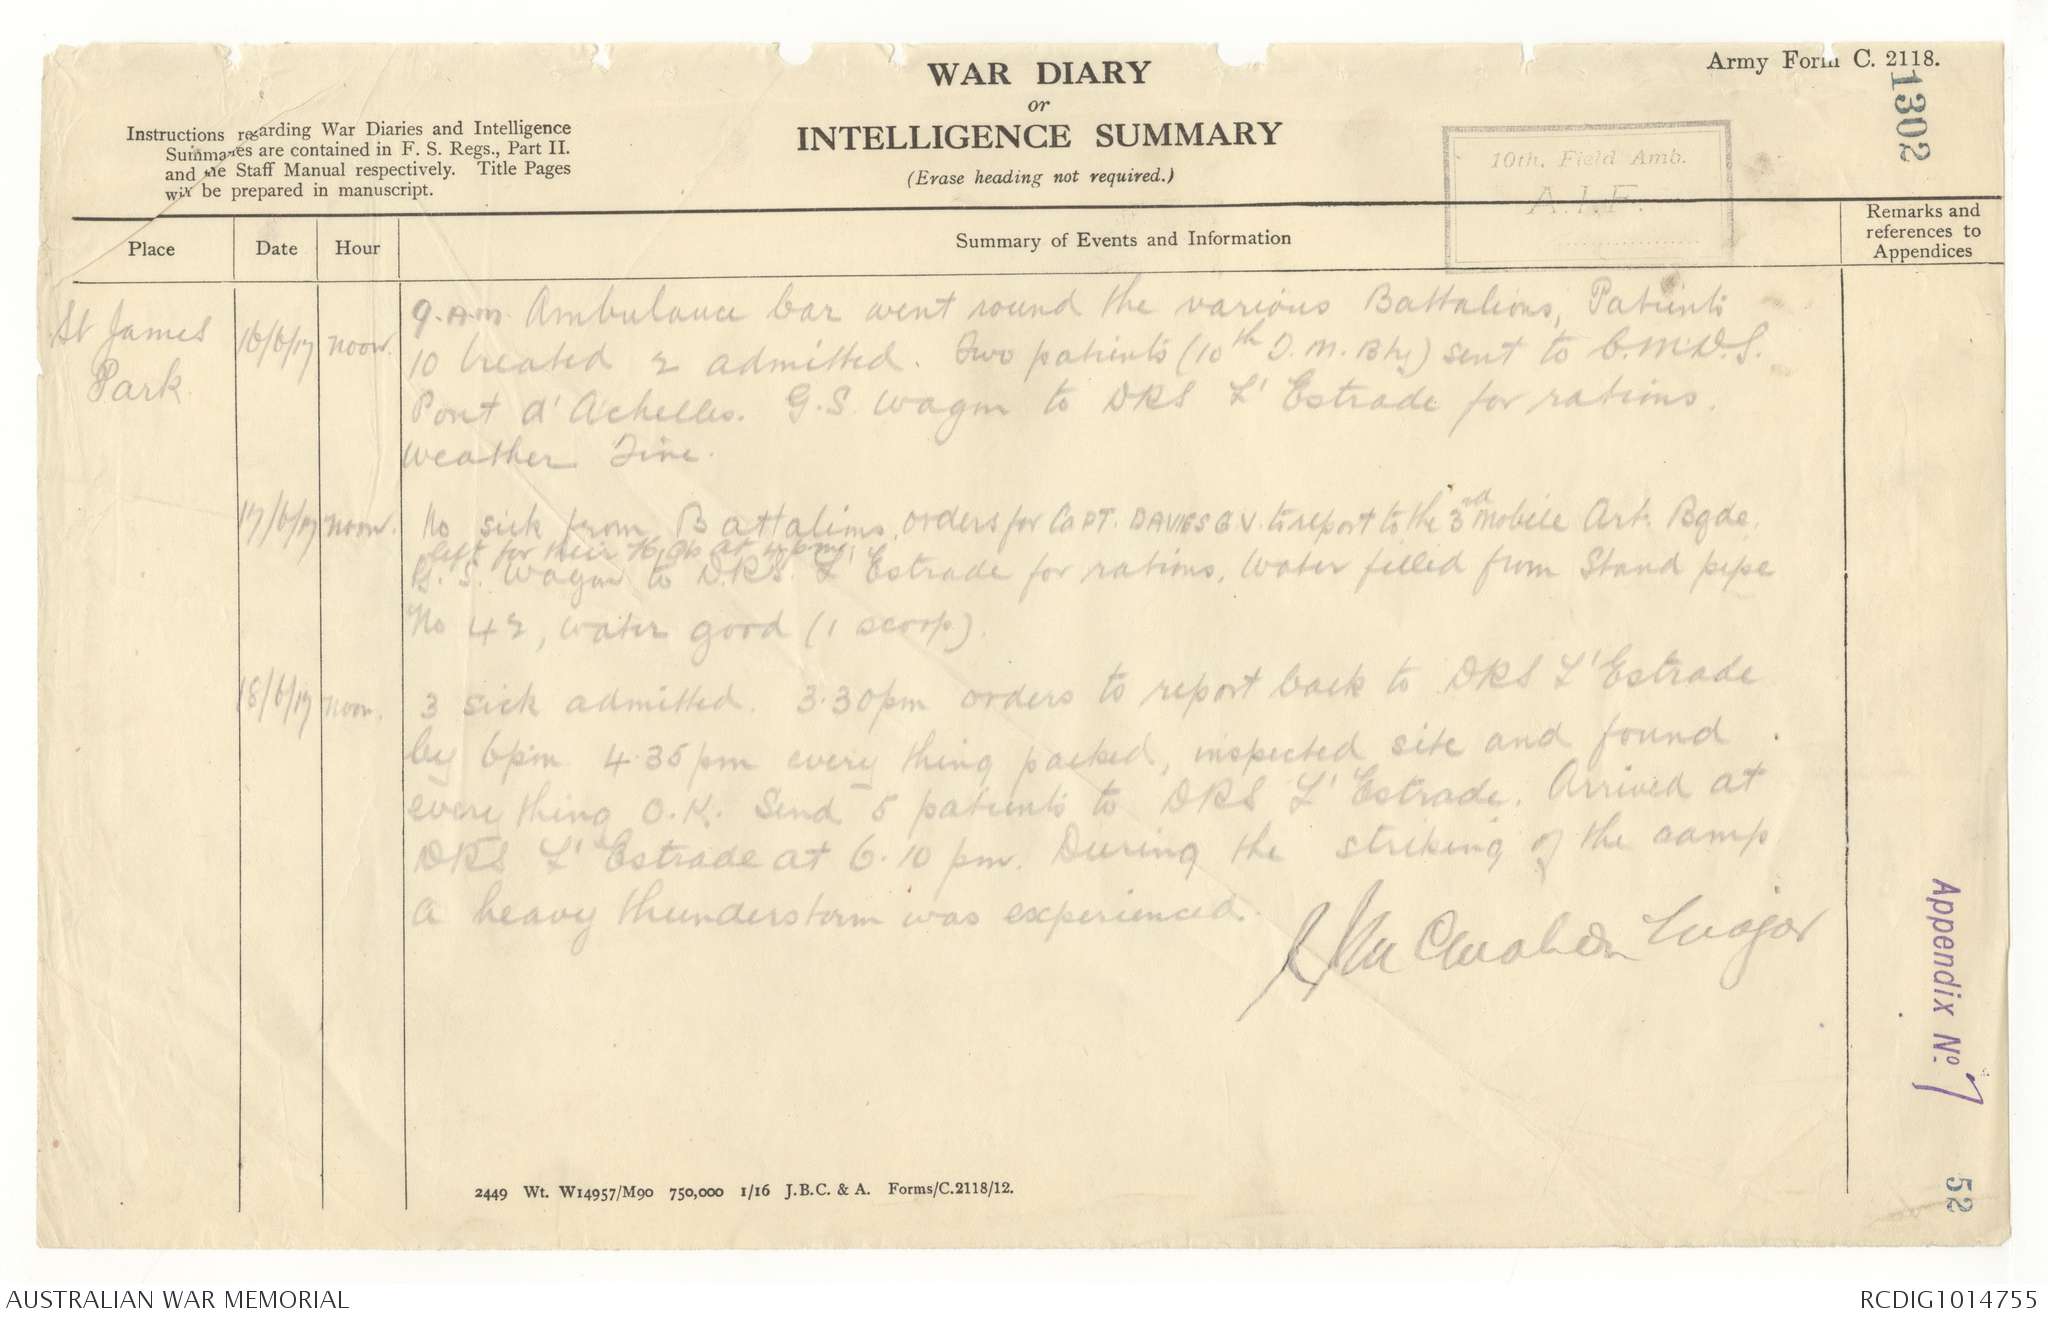 Army Form C. 2118.
1302
WAR DIARY
or
INTELLIGENCE SUMMARY
(Erase heading not required.)
Instructions regarding War Diaries and Intelligence
Summaries are contained in F. S. Regs., Part II.
and the Staff Manual respectively. Title Pages
will be prepared in manuscript.
10th. Field Amb.
A.I.F.
Place Date Hour Summary of Events and Information Remarks and references to Appendices
St James
Park
16/6/17 noon. 9.A.m. Ambulance Car went round the various Battalions, Patients
10 treated 2 admitted. Two patients (10th T.M. Bty) sent to C.M.D.S.
Pont d'Achelles. G.S. Wagon to DRS L'Estrade for rations.
Weather Fine.
17/6/17 noon. No sick from Battalions, orders for CAPT. DAVIES G V. to report to the 3rd Mobile Art. Bgde.
left for their H.Qs at 4 pm,
G.S. Wagon to D.R.S. L'Estrade for rations, Water filled from Stand pipe
No 42, water good (1 scoop).
18/6/17 noon. 3 sick admitted. 3.30pm orders to report back to DRS L'Estrade
by 6pm 4.35pm every thing packed, inspected site and found
every thing O.K. Send 5 patients to DRS L'Estrade. Arrived at
DRS L'Estrade at 6.10 pm. During the striking of the camp
a heavy thunderstorm was experienced.
Major
Appendix No. 7
52
2449 Wt. W14957/M90 750,000 1/16 J.B.C. & A. Forms/C.2118/12.
AUSTRALIAN WAR MEMORIAL
RCDIG1014755